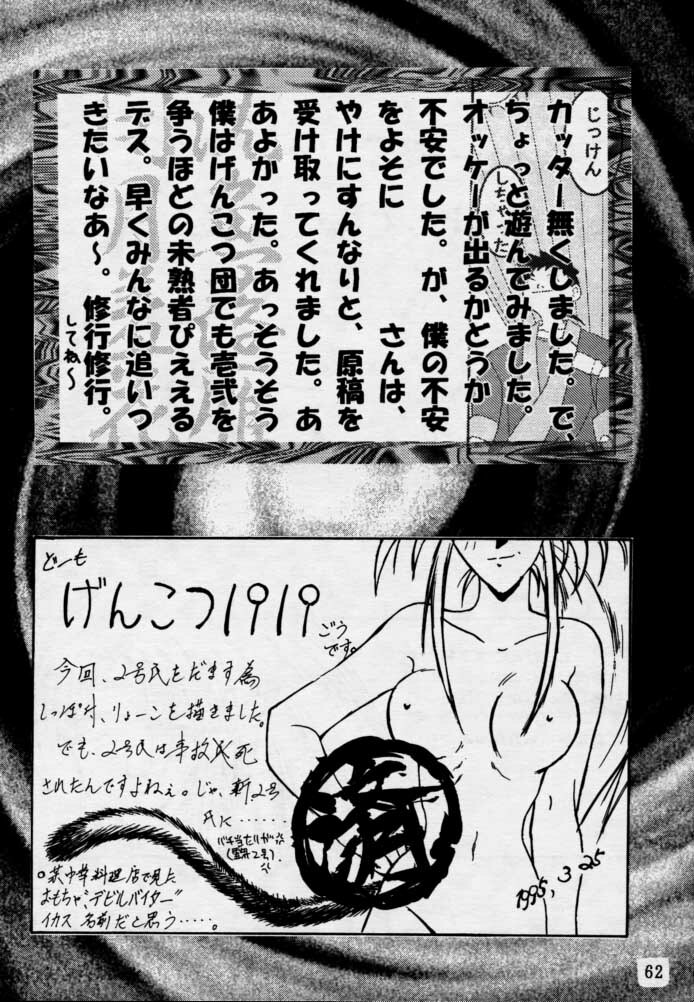 じっけん
しちゃった
カッター無くしました。で、
ちょっと遊んでみました。
オッケーが出るかとうか
不安でした。が、僕の不安
をよそに　　　さんは、
やけにすんなりと、原稿を
受け取ってくれました。あ
あよかった。あっそうそう
僕はげんこつ団でも壱弐を
争うほどの未熟者ぴええる
デス。早くみんなに追いつ
きたいなあ～。修行修行。
してね～
どーも
げんこつ1919
ごう
です。
今回、2号氏をだます為
しっぽ付、りょーこを描きました。
でも、2号氏は事故死
されたんですよねぇ。じゃ、新2号
氏に……
バチ当たりが
済
。某中華料理店で見た
おもちゃ、"デビルバイター"
イカス名前だと思う……。
1995, 3, 25
62